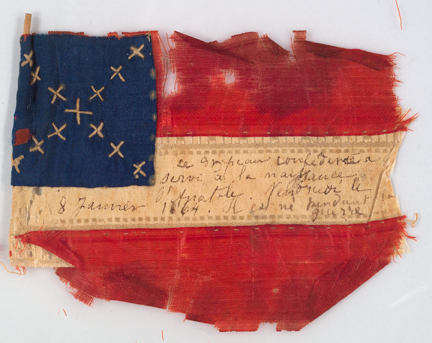 ce drapeau confédéré a
servi à la naissance
d'Anatole. Vendredi le
8 Janvier 1864. Il est né pendant la
guerre